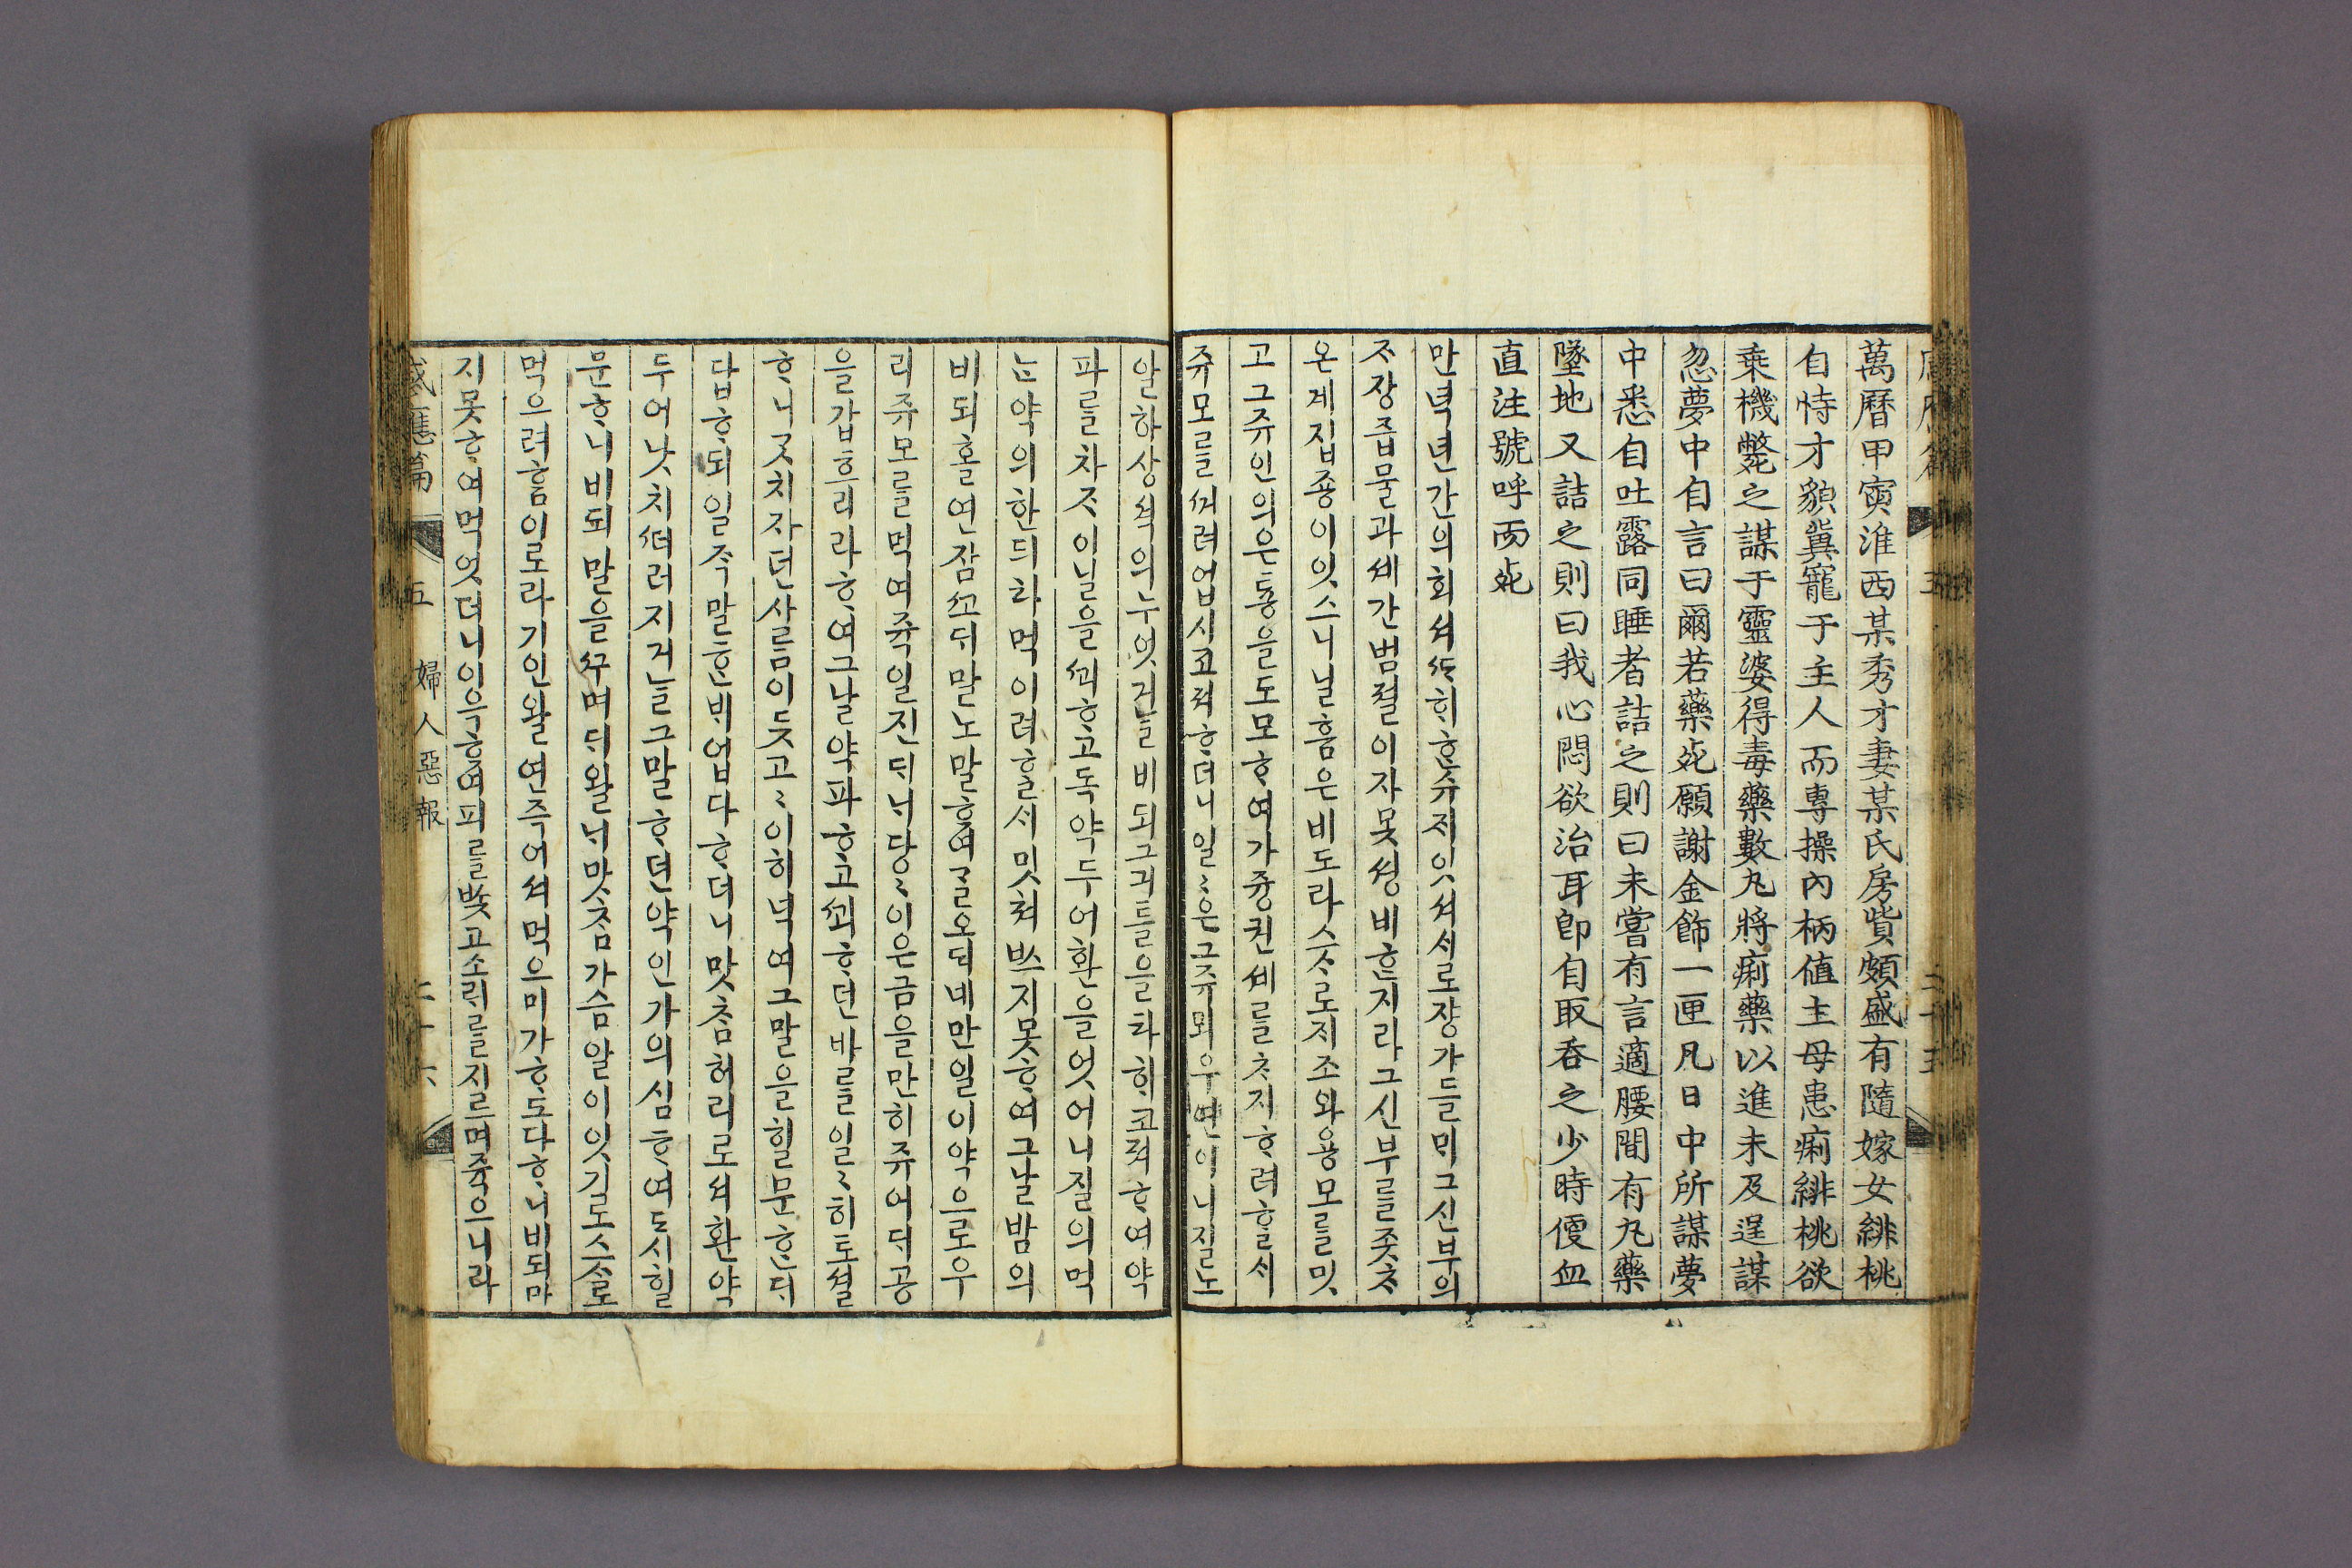 萬曆甲寅淮西某秀才妻某氏房貲頗盛有隨嫁女緋桃
自恃才貌冀寵于主人而專操內柄値主母患痢緋桃欲
乘機斃之謀于靈婆得毒藥數丸將痢藥以進未及逞謀
忽夢中自言曰爾若藥死願謝金飾一匣凡日中所謀夢
中悉自吐露同睡者詰之則曰未嘗有言適腰間有丸藥
墜地又詰之則曰我心悶欲治耳卽自取呑之少時便血
直注號呼而死
만녁년간의회셔ᄯᅡ히ᄒᆞᆫ슈ᄌᆡ잇셔서로쟝가들ᄆᆡ그신부의
ᄌᆞ장즙물과셰간범졀이자못셩비ᄒᆞᆫ지라그신부를좃ᄎᆞ
온계집죵이잇스니닐흠은비도라스ᄉᆞ로ᄌᆡ조와용모를밋
고그쥬인의은통을도모ᄒᆞ여가즁권셰를ᄎᆞ지ᄒᆞ려ᄒᆞᆯᄉᆡ
쥬모를ᄭᅥ려업시코져ᄒᆞ더니일〻은그쥬뫼우연이니질노
알하상셕의누엇거늘비되그ᄯᆡ를타ᄒᆡ코져ᄒᆞ여약
파를차ᄌᆞ이닐을ᄭᅬᄒᆞ고독약두어환을엇어니질의먹
는약의한ᄃᆡ타먹이려ᄒᆞᆯᄉᆡ밋쳐ᄡᅳ지못ᄒᆞ여그날밤의
비되홀연잠ᄭᅩᄃᆡ말노말ᄒᆞ여ᄀᆞᆯ오ᄃᆡ네만일이약으로우
리쥬모를먹여죽일진ᄃᆡᄂᆡ당〻이은금을만히쥬어ᄃᆡ공
을갑흐리라ᄒᆞ여그날약파ᄒᆞ고ᄭᅬᄒᆞ던바를일〻히토셜
ᄒᆞ니겻ᄎᆡ자던사ᄅᆞᆷ이듯고〻이히녁여그말을힐문ᄒᆞᆫᄃᆡ
답ᄒᆞ되일즉말ᄒᆞᆫᄇᆡ업다ᄒᆞ더니맛ᄎᆞᆷ허리로셔환약
두어낫치ᄯᅥ러지거늘그말ᄒᆞ던약인가의심ᄒᆞ여ᄯᅩ시힐
문ᄒᆞ니비되말을ᄭᅮ며ᄃᆡ왈ᄂᆡ맛ᄎᆞᆷ가슴알이잇기로스ᄉᆞ로
먹으려ᄒᆞᆷ이로라기인왈연즉어셔먹으미가ᄒᆞ도다ᄒᆞ니비되마
지못ᄒᆞ여먹엇더니이윽ᄒᆞ여피를ᄡᅩᆺ고소ᄅᆡ를지르며죽으니라
感應篇 五 婦人惡報 二十六